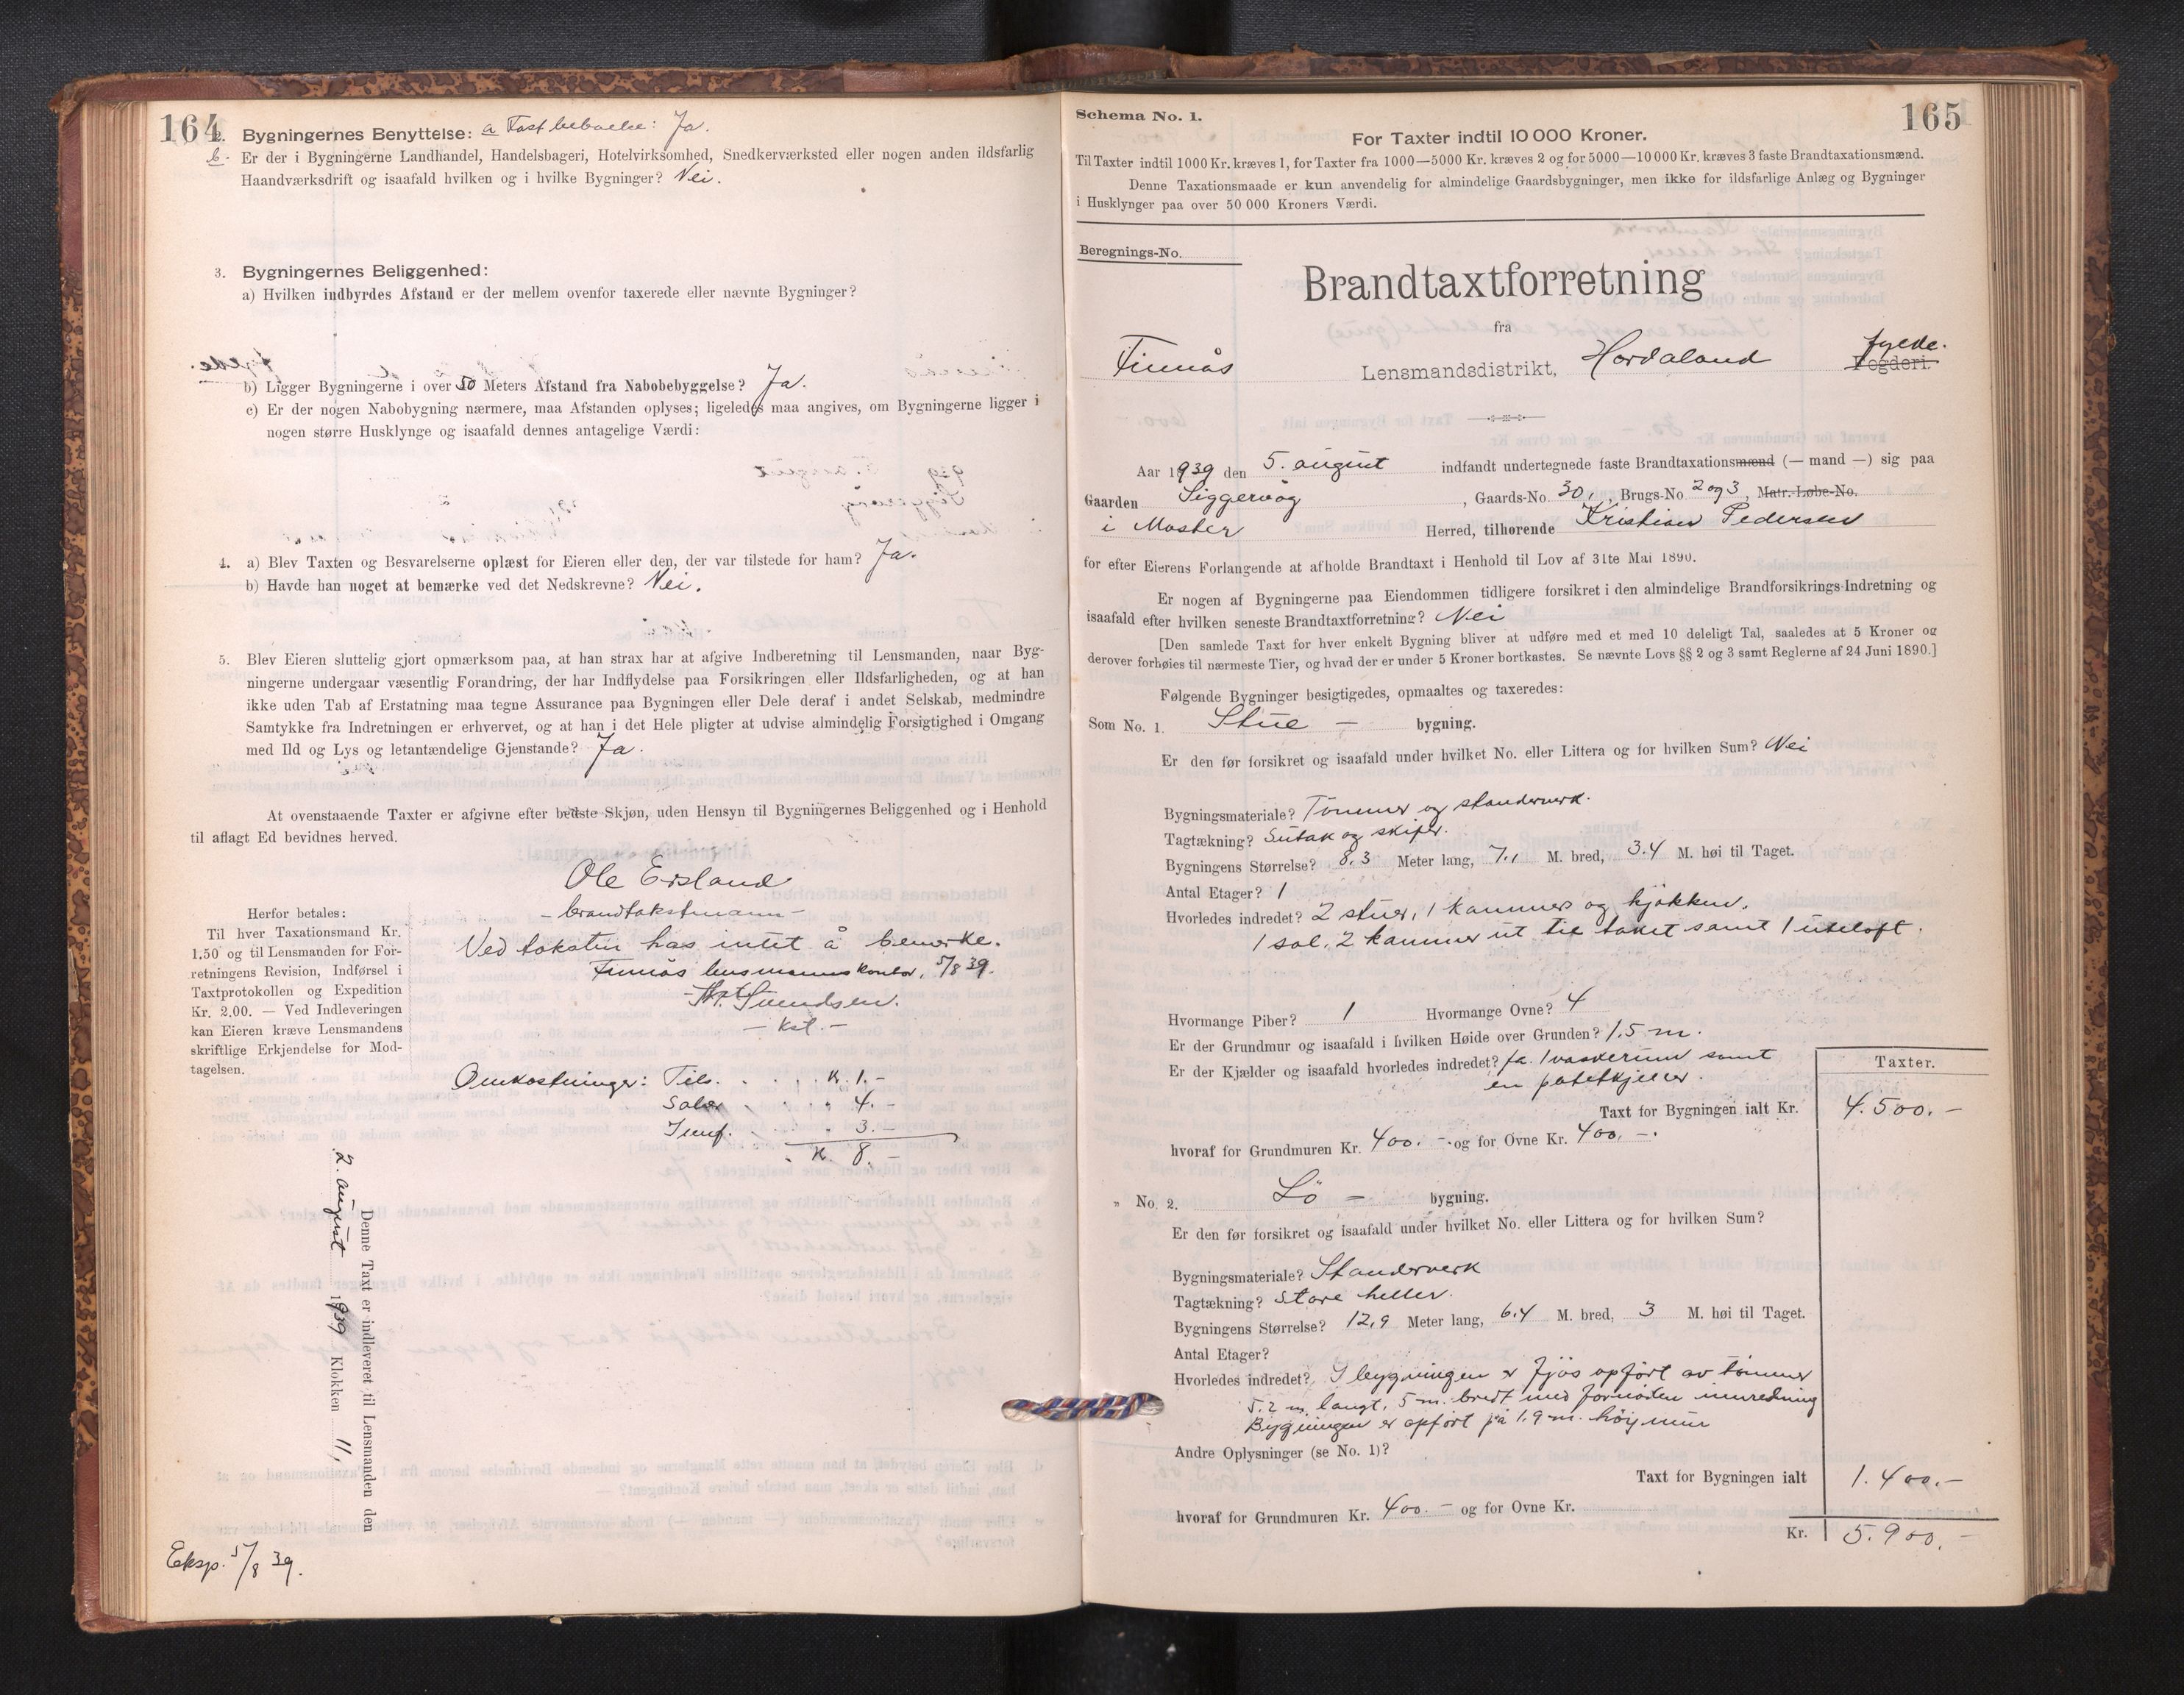 164
2. Bygningernes Benyttelse: a Fast beboelse: Ja.
b. Er der i Bygningerne Landhandel, Handelsbageri, Hotelvirksomhed, Snedkerværksted eller nogen anden ildsfarlig
Haandværksdrift og isaafald hvilken og i hvilke Bygninger? Nei.
3. Bygningernes Beliggenhed:
a) Hvilken indbyrdes Afstand er der mellem ovenfor taxerede eller nævnte Bygninger?
b) Ligger Bygningerne i over 50 Meters Afstand fra Nabobebyggelse? Ja.
c) Er der nogen Nabobygning nærmere, maa Afstanden oplyses; ligeledes maa angives, om Bygningerne ligger i
nogen større Husklynge og isaafald dennes antagelige Værdi:
4. a) Blev Taxten og Besvarelserne oplæst for Eieren eller den, der var tilstede for ham? Ja.
b) Havde han noget at bemærke ved det Nedskrevne? Nei.
5. Blev Eieren sluttelig gjort opmærksom paa, at han strax har at afgive Indberetning til Lensmanden, naar Byg-
ningerne undergaar væsentlig Forandring, der har Indflydelse paa Forsikringen eller Ildsfarligheden, og at han
ikke uden Tab af Erstatning maa tegne Assurance paa Bygningen eller Dele deraf i andet Selskab, medmindre
Samtykke fra Indretningen er erhvervet, og at han i det Hele pligter at udvise almindelig Forsigtighed i Omgang
med Ild og Lys og letantændelige Gjenstande? Ja.
At ovenstaaende Taxter er afgivne efter bedste Skjøn, uden Hensyn til Bygningernes Beliggenhed og i Henhold
til aflagt Ed bevidnes herved.
Ole Ersland
- brandtakstmann -
Ved taksten has intet å bemerke.
Finnås lensmannskontor, 5/8 39.
Svendsen.
- kst. -
Herfor betales:
Til hver Taxationsmand Kr.
1.50 og til Lensmanden for For-
retningens Revision, Indførsel i
Taxtprotokollen og Expedition
Kr. 2.00. — Ved Indleveringen
kan Eieren kræve Lensmandens
skriftlige Erkjendelse for Mod-
tagelsen.
Omkostninger: Tils. . . . . K. 1.-
Salær . . . . 4.-
Innf. . . . . 3.-
K. 8.-
Denne Taxt er indleveret til Lensmanden den
2. august 1939 Klokken 11,
Eksp. 5/8 39.
165
Schema No. 1.
For Taxter indtil 10 000 Kroner.
Til Taxter indtil 1000 Kr. kræves 1, for Taxter fra 1000—5000 Kr. kræves 2 og for 5000—10 000 Kr. kræves 3 faste Brandtaxationsmænd.
Denne Taxationsmaade er kun anvendelig for almindelige Gaardsbygninger, men ikke for ildsfarlige Anlæg og Bygninger
i Husklynger paa over 50 000 Kroners Værdi.
Beregnings-No.
Brandtaxtforretning
fra
Finnås Lensmandsdistrikt, Hordaland fylde.
Fogderi.
Aar 1939 den 5. august indfandt undertegnede faste Brandtaxationsmænd (— mand —) sig paa
Gaarden Siggervåg, Gaards-No. 30, Brugs-No 2 og 3, Matr.-Løbe-No.
i Moster Herred, tilhørende Kristian Pedersen
for efter Eierens Forlangende at afholde Brandtaxt i Henhold til Lov af 31te Mai 1890.
Er nogen af Bygningerne paa Eiendommen tidligere forsikret i den almindelige Brandforsikrings-Indretning og
isaafald efter hvilken seneste Brandtaxtforretning? Nei
[Den samlede Taxt for hver enkelt Bygning bliver at udføre med et med 10 deleligt Tal, saaledes at 5 Kroner og
derover forhøies til nærmeste Tier, og hvad der er under 5 Kroner bortkastes. Se nævnte Lovs §§ 2 og 3 samt Reglerne af 24 Juni 1890.]
Følgende Bygninger besigtigedes, opmaaltes og taxeredes:
Som No. 1. Stue - bygning.
Er den før forsikret og isaafald under hvilket No. eller Littera og for hvilken Sum? Nei
Bygningsmateriale? Tömmer og standerverk.
Tagtækning? Sutak og skifer.
Bygningens Størrelse? 8,3 Meter lang, 7,1 M. bred, 3.4 M. høi til Taget.
Antal Etager? 1
Hvorledes indredet? 2 stuer, 1 kammer og kjøkken.
1 sal. 2 kammer ut til taket samt 1 uteloft.
Hvormange Piber? 1 Hvormange Ovne? 4
Er der Grundmur og isaafald i hvilken Høide over Grunden? 1.5 m.
Er der Kjælder og isaafald hvorledes indredet? Ja. 1 vaskerum samt
en potetkjeller.
Taxter.
Taxt for Bygningen ialt Kr. 4.500.-
hvoraf for Grundmuren Kr. 400.- og for Ovne Kr. 400.-.
" No. 2. Lö - bygning.
Er den før forsikret og isaafald under hvilket No. eller Littera og for hvilken Sum?
Bygningsmateriale? Standerverk
Tagtækning? Store heller.
Bygningens Størrelse? 12,9 Meter lang, 6.4 M. bred, 3 M. høi til Taget.
Antal Etager?
Hvorledes indredet? I bygningen er fjös opfört av tömmer
5.2 m. langt, 5 m. bredt med fornöden innredning
Bygningen er opfört på 1.9 m. höy mur
Andre Oplysninger (se No. 1)?
Taxt for Bygningen ialt 1.400.-
hvoraf for Grundmuren Kr. 400.- og for Ovne Kr.
Kr. 5.900.-